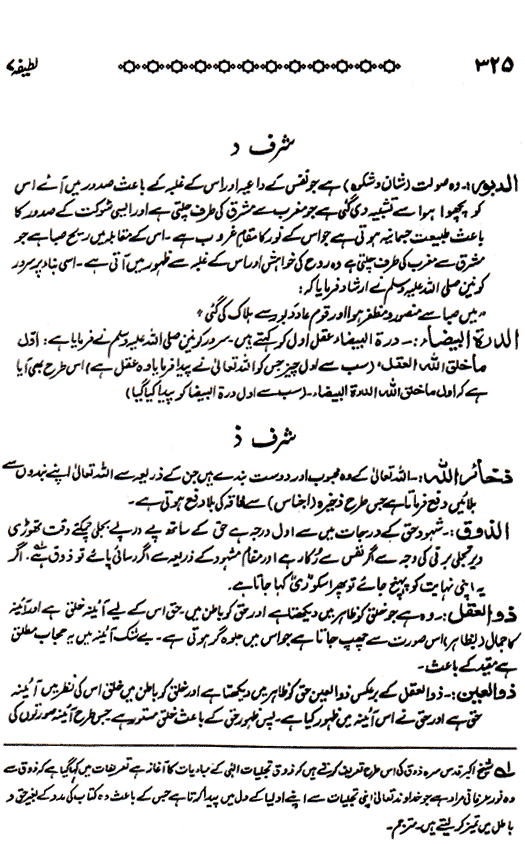 ۳۲۵ لطیفہ ۷
شرف د
الدبور:۔ وہ صولت (شان و شکوہ) ہے جو نفس کے داعیہ اور اس کے غلبہ کے باعث صدور میں آئے اس
کو پچھوا ہوا سے تشبیہ دی گئی ہے جو مغرب سے مشرق کی طرف چلتی ہے اور ایسی شوکت کے صدور کا
باعث طبیعت جسمانیہ ہوتی ہے جو اس کے نور کا مقام غروب ہے۔ اس کے مقابلہ میں ریح صبا ہے جو
مشرق سے مغرب کی طرف چلتی ہے وہ روح کی خواہش اور اس کے غلبہ سے ظہور میں آتی ہے۔ اسی بناد پر سرور
کونین صلی اللہ علیہ وسلم نے ارشاد فرمایا کہ:
"میں صبا سے منصور و مظفر ہوا اور قوم عاد دبور سے ہلاک کی گئی"
الدرۃ البیضاء:۔ درۃ البیضاء عقل اول کو کہتے ہیں۔ سرور کونین صلی اللہ علیہ وسلم نے فرمایا ہے: اوّل
ماخلق اللہ العقل" (سب سے اول چیز جس کو اللہ تعالیٰ نے پیدا فرمایا وہ عقل ہے) اس طرح بھی آیا
ہے کہ اول ماخلق اللہ الدرۃ البیضاء۔ (سب سے اول درۃ البیضا کو پیدا کیا گیا)
شرف ذ
ذخائر اللہ:۔ اللہ تعالیٰ کے وہ محبوب اور دوست بندے ہیں جن کے ذریعہ سے اللہ تعالیٰ اپنے بندوں سے
بلائیں دفع فرماتا ہے جس طرح ذخیرہ (اجناس) سے فاقہ کی بلا دفع ہوتی ہے۔
الذوق:۔ شہود حق کے درجات میں سے اول درجہ ہے حق کے ساتھ پے درپے بجلی چمکتے وقت تھوڑی
دیر تجلی برقی کی وجہ سے اگر نفس سے رکا رہے اور مقام مشہود کے ذریعہ سے اگر رسائی پائے تو ذوق ہے۔ اگر
یہ اپنی نہایت کو پہنچ جائے تو پھر اسکو ریّ کہا جاتا ہے۔
ذوالعقل:۔ وہ ہے جو خلق کو ظاہر میں دیکھتا ہے اور حق کو باطن میں۔ حق اس کے لیے آئینہ خلق ہے اور آئینہ
کا جمال (بظاہر) اس صورت سے چھپ جاتا ہے جو اس میں جلوہ گر ہوتی ہے۔ بے شک آئینہ میں یہ حجاب مطلق
ہے مقید کے باعث۔
ذوالعین:۔ ذوالعقل کے برعکس ذوالعین حق کو ظاہر میں دیکھتا ہے اور خلق کو باطن میں خلق اس کی نظر میں آئینہ
حق ہے اور حق نے اس آئینہ میں ظہور کیا ہے۔ پس ظہور حق کے باعث خلق مستور ہے جس طرح آئینہ صورتوں کی
لہ شیخ اکبر قدس سرہ ذوق کی اس طرح تعریف کرتے ہیں کہ ذوق تجلیات الہٰی کے مبادیات کا آغاز ہے تعریفات میں کہا گیا ہے کہ ذوق سے
وہ نور عرفانی مراد ہے جو خداوند تعالیٰ اپنی تجلیات سے اپنے اولیا کے دل میں پیدا کرتا ہے جس کے باعث وہ کتاب کی مدد کے بغیر حق و
باطل میں تمیز کر لیتے ہیں۔ مترجم۔